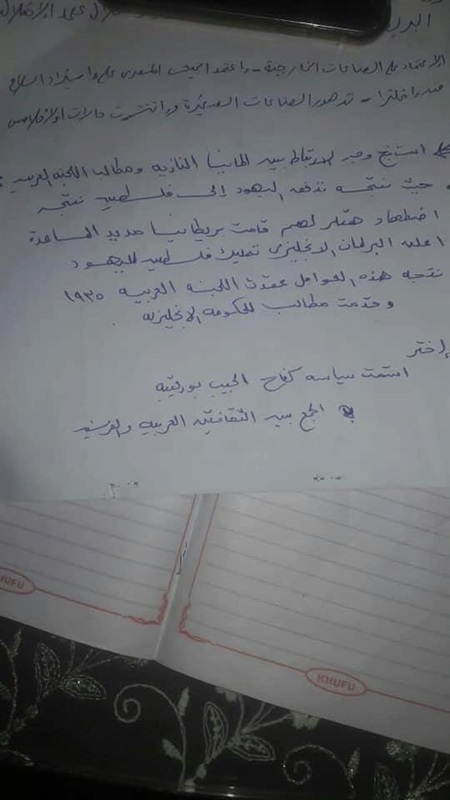 عهد الاحتلال
الاعتماد على الصناعات الخارجية - واعتمد الجيش المصرى على استيراد السلاح
من انجلترا - تدهور الصناعات الصغيرة وانتشرت حالات الافلاس
استنتج وجه الارتباط بين المانيا النازيه ومطالب اللجنه العربيه :
حيث نتيجه تدفق اليهود إلى فلسطين نتيجه
اضطهاد هتلر لهم قامت بريطانيا بمديد المساعدة
اعلن البرلمان الانجليزى تمليك فلسطين لليهود
نتيجه هذه العوامل عقدت اللجنه العربيه ١٩٣٥
وقدمت مطالب للحكومه الانجليزيه
إختر
اتسمت سياسه كفاح الحبيب بورقيبه
الجمع بين الثقافتين العربيه والفرنسيه
KHUFU
KHUFU